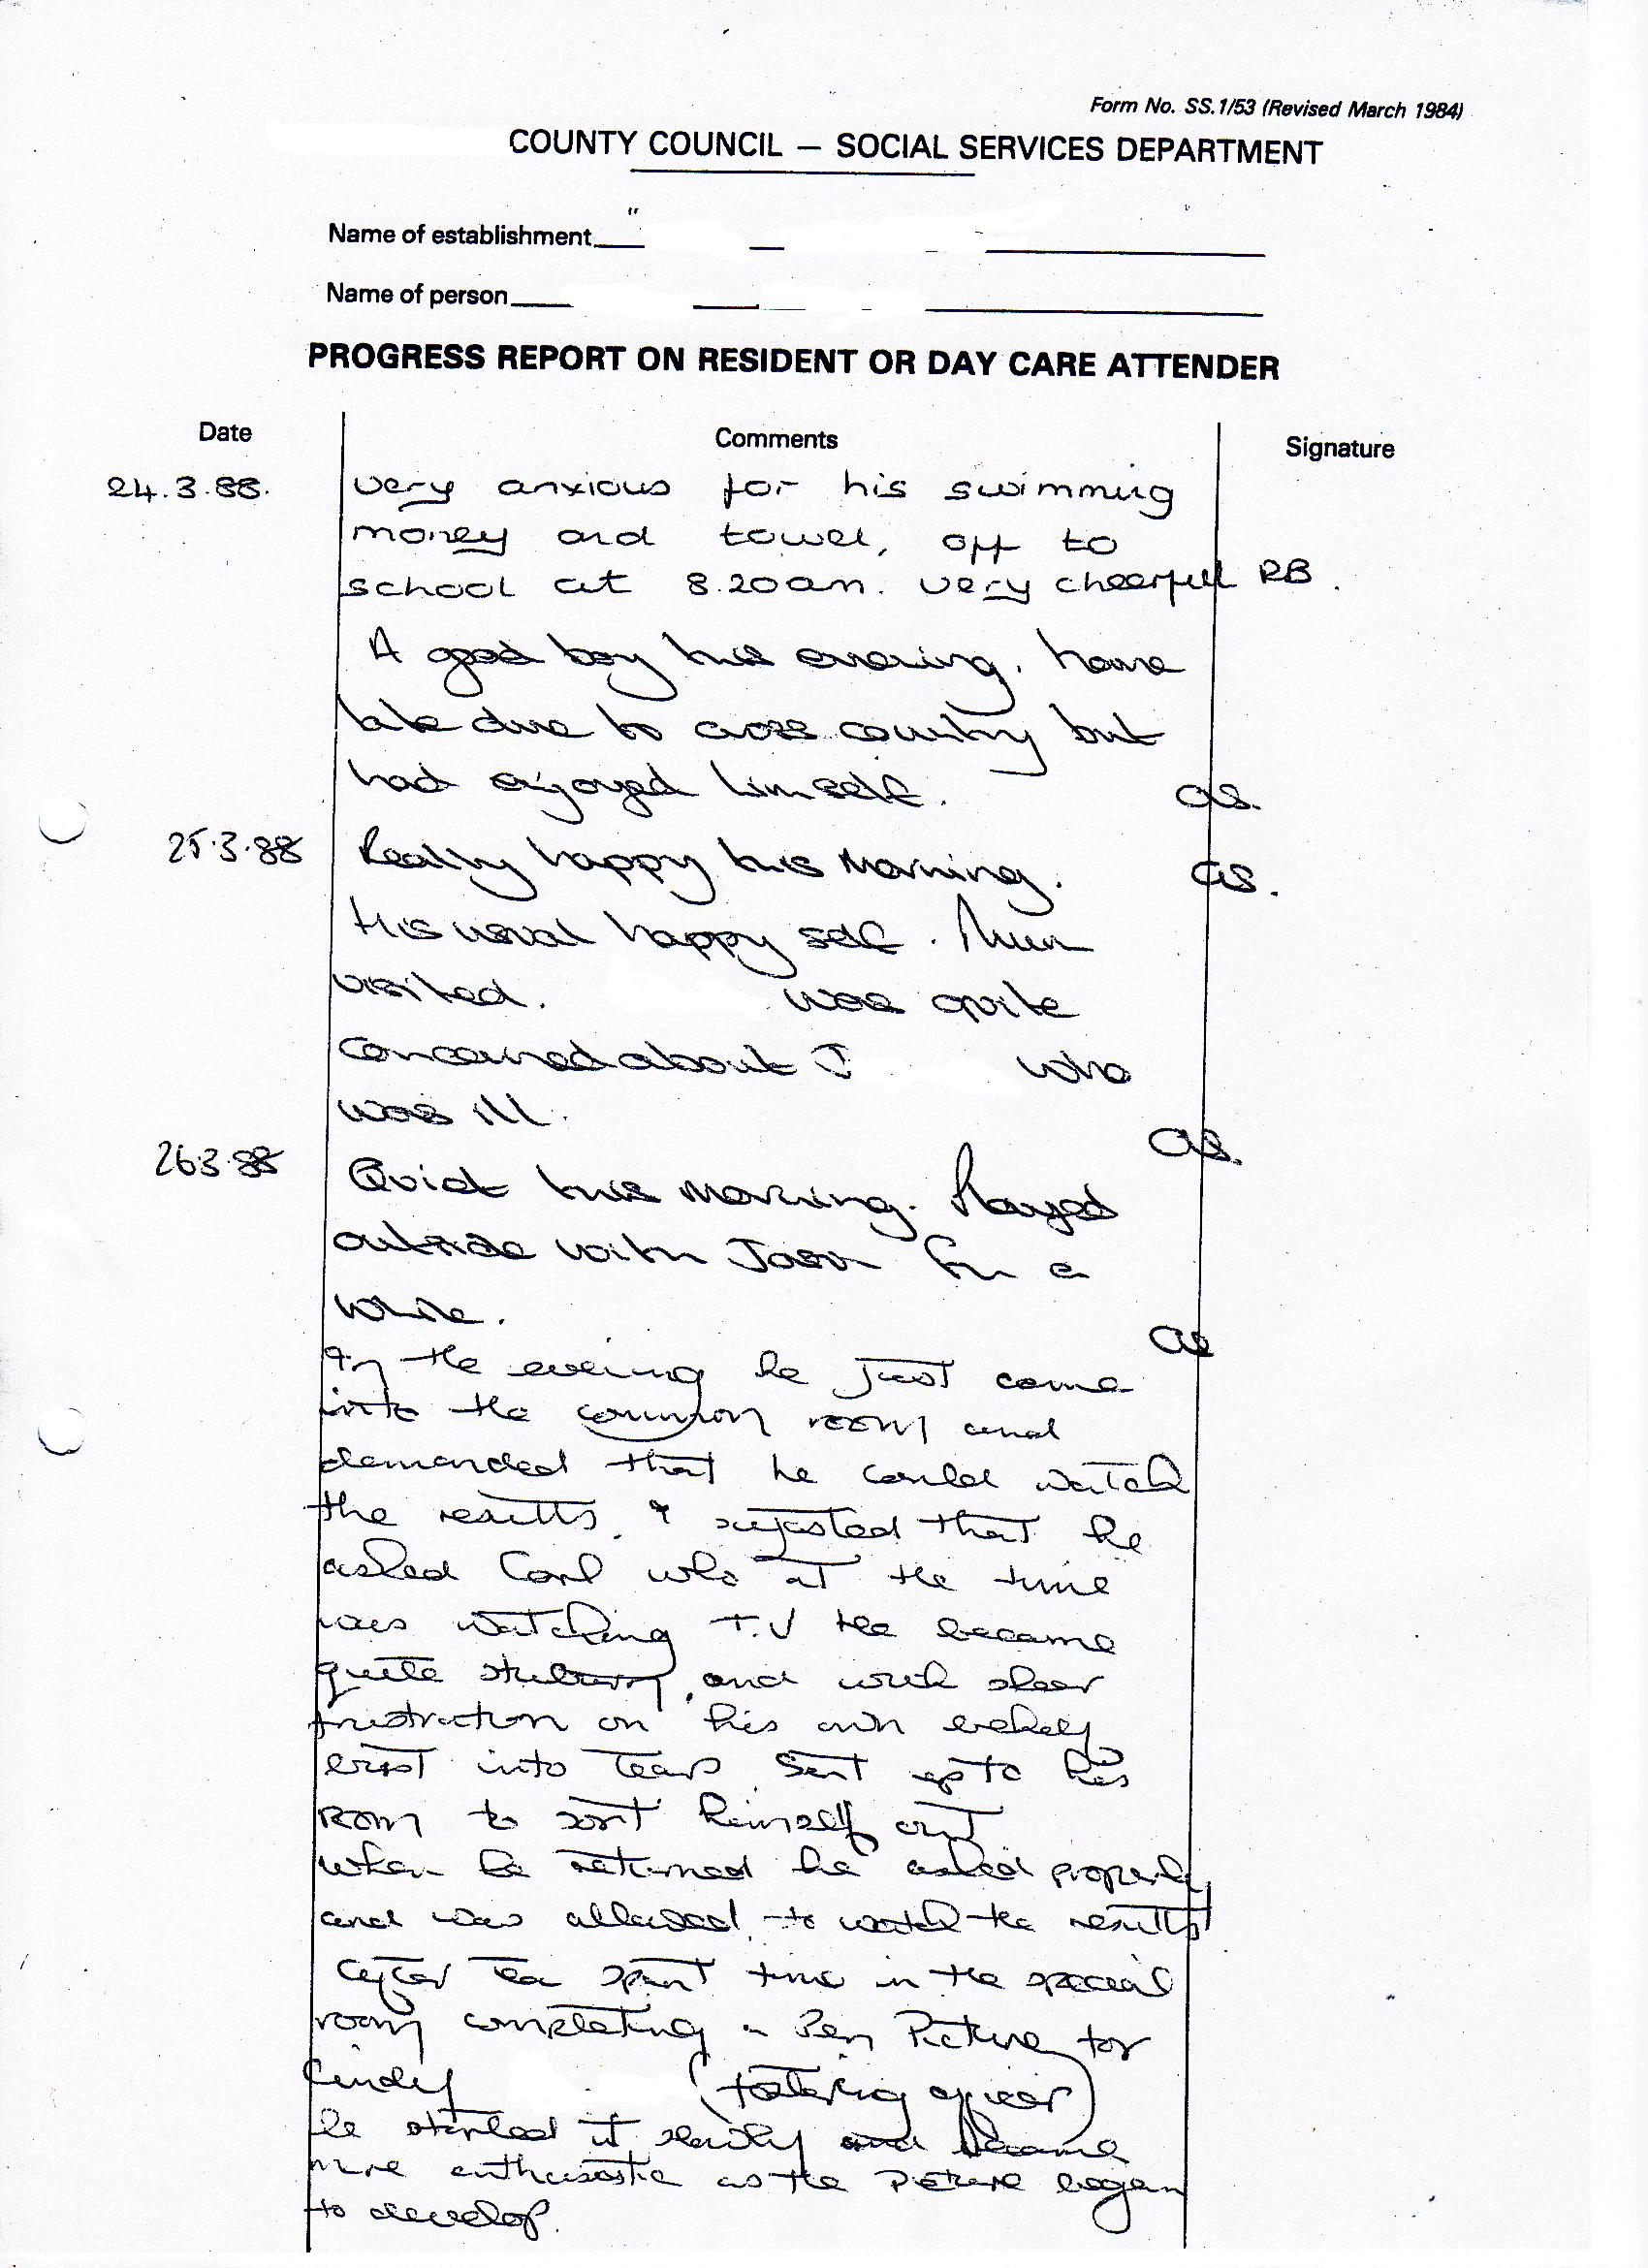 Form No. SS.1/53 (Revised March 1984)
COUNTY COUNCIL — SOCIAL SERVICES DEPARTMENT
Name of establishment
Name of person
PROGRESS REPORT ON RESIDENT OR DAY CARE ATTENDER
Date Comments Signature
24.3.88. very anxious for his swimming
money and towel, off to
school at 8.20am. very cheerfull RB.
A good boy this evening. home
late due to cross country but
had enjoyed himself. as.
25.3.88 Really happy this Morning. as.
His usual happy self. Mum
visited. was quite
concerned about J who
was ill. as.
26.3.88 Quiet this Morning. Played
outside with Jason for a
while. as
In the evening he just came
into the common room and
demanded that he could watch
the results. I sujested that he
asked Carl who at the time
was watching T.V He became
quite stuborn, and with sheer
frustration on his own
erust into tears Sent up to his
room to sort himself out
when he returned he asked properly
and was allowed to watch the results
after tea spent time in the special
room completing a Pen Picture for
(fostering officer)
he started it slowly and became
more enthusastic as the Picture began
to develop.